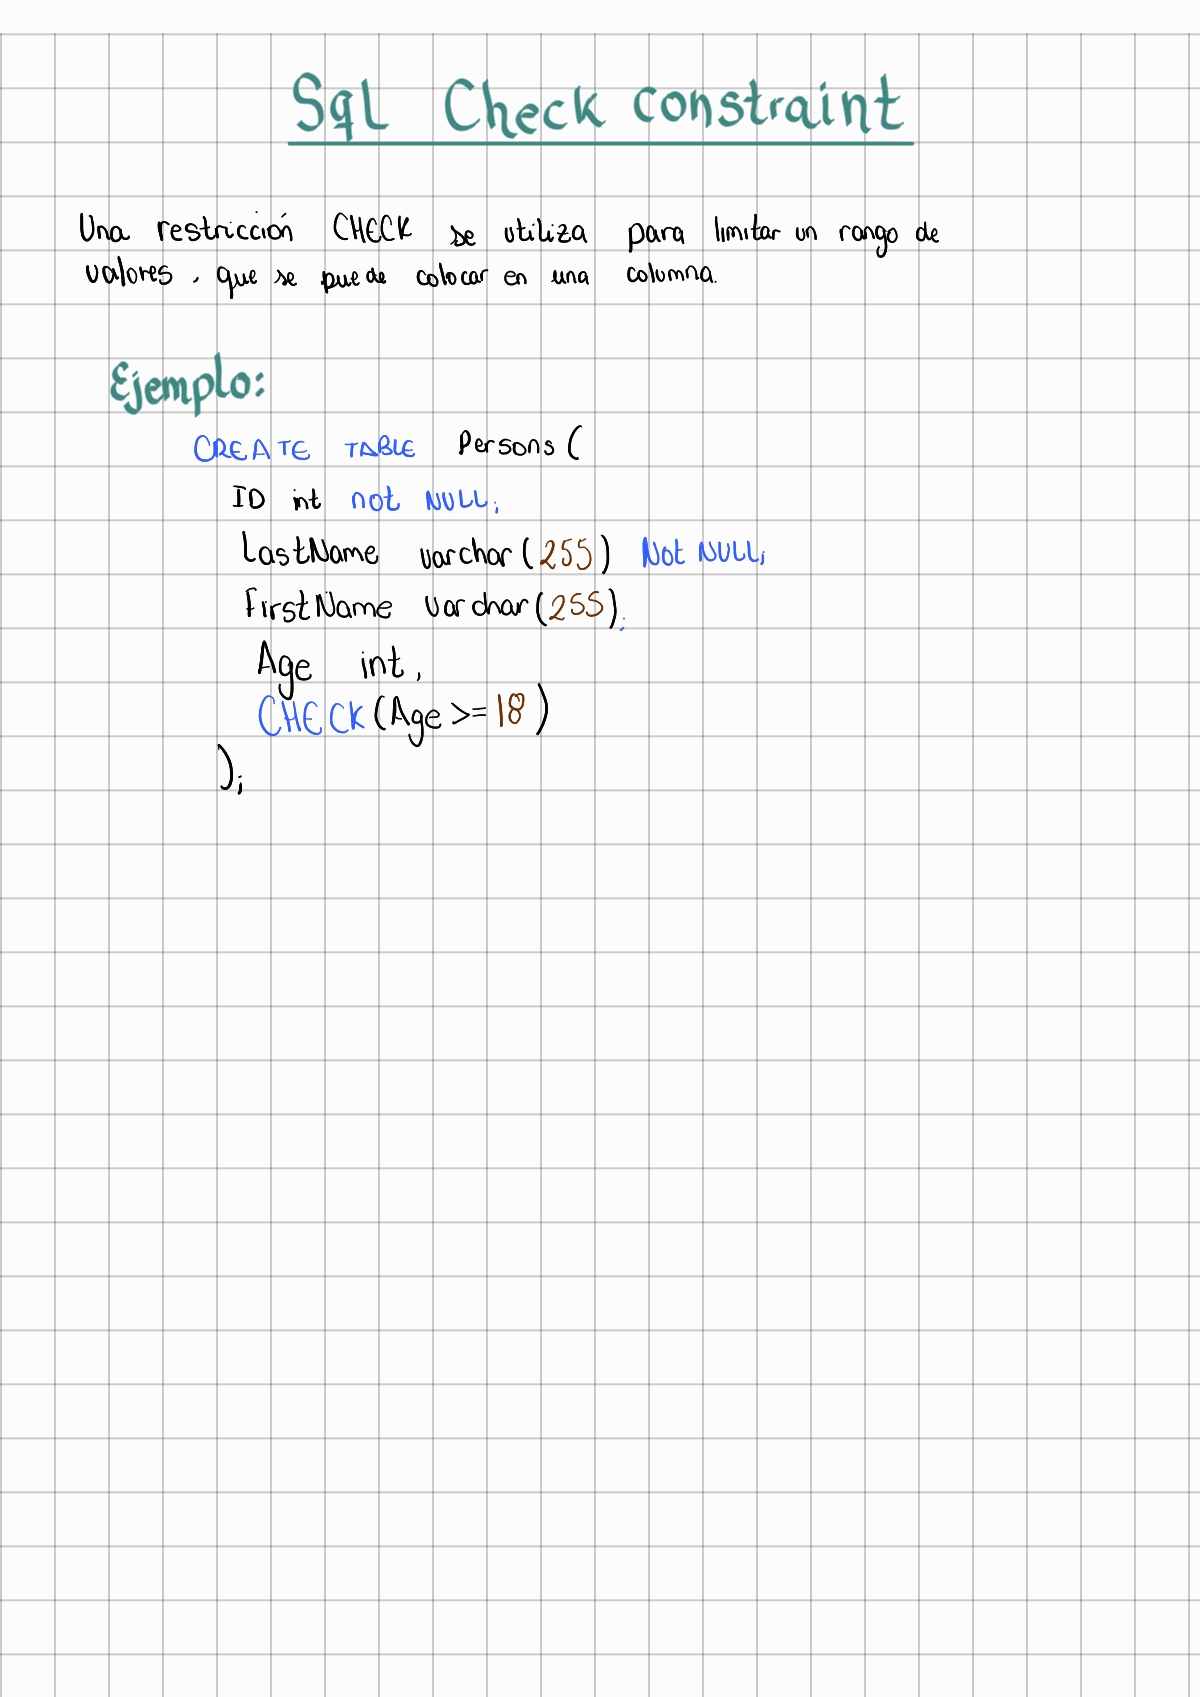 Sql Check constraint
Una restricción CHECK se utiliza para limitar un rango de
valores, que se puede colocar en una columna.
Ejemplo:
CREATE TABLE Persons (
ID int not NULL;
LastName varchar (255) Not NULL;
FirstName varchar (255);
Age int,
CHECK (Age >= 18)
);